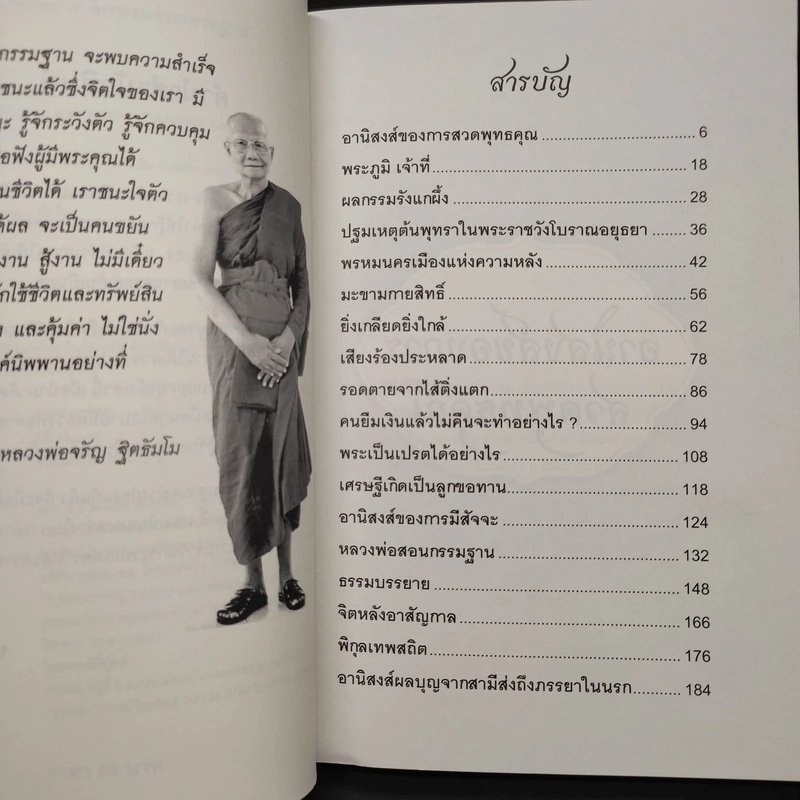 กรรมฐาน จะพบความสำเร็จ
ชนะแล้วซึ่งจิตใจของเรา มี
รู้จักระวังตัว รู้จักควบคุม
ฟังผู้มีพระคุณได้
ชีวิตได้ เราชนะใจตัว
ได้ผล จะเป็นคนขยัน
งาน สู้งาน ไม่มีเดี๋ยว
ใช้ชีวิตและทรัพย์สิน
และคุ้มค่า ไม่ใช่นั่ง
นิพพานอย่างที่
หลวงพ่อจรัญ ฐิตธัมโม
สารบัญ
อานิสงส์ของการสวดพุทธคุณ 6
พระภูมิ เจ้าที่ 18
ผลกรรมรังแกผึ้ง 28
ปฐมเหตุต้นพุทราในพระราชวังโบราณอยุธยา 36
พรหมนครเมืองแห่งความหลัง 42
มะขามกายสิทธิ์ 56
ยิ่งเกลียดยิ่งใกล้ 62
เสียงร้องประหลาด 78
รอดตายจากไส้ติ่งแตก 86
คนยืมเงินแล้วไม่คืนจะทำอย่างไร ? 94
พระเป็นเปรตได้อย่างไร 108
เศรษฐีเกิดเป็นลูกขอทาน 118
อานิสงส์ของการมีสัจจะ 124
หลวงพ่อสอนกรรมฐาน 132
ธรรมบรรยาย 148
จิตหลังอาสัญกาล 166
พิกุลเทพสถิต 176
อานิสงส์ผลบุญจากสามีส่งถึงภรรยาในนรก 184